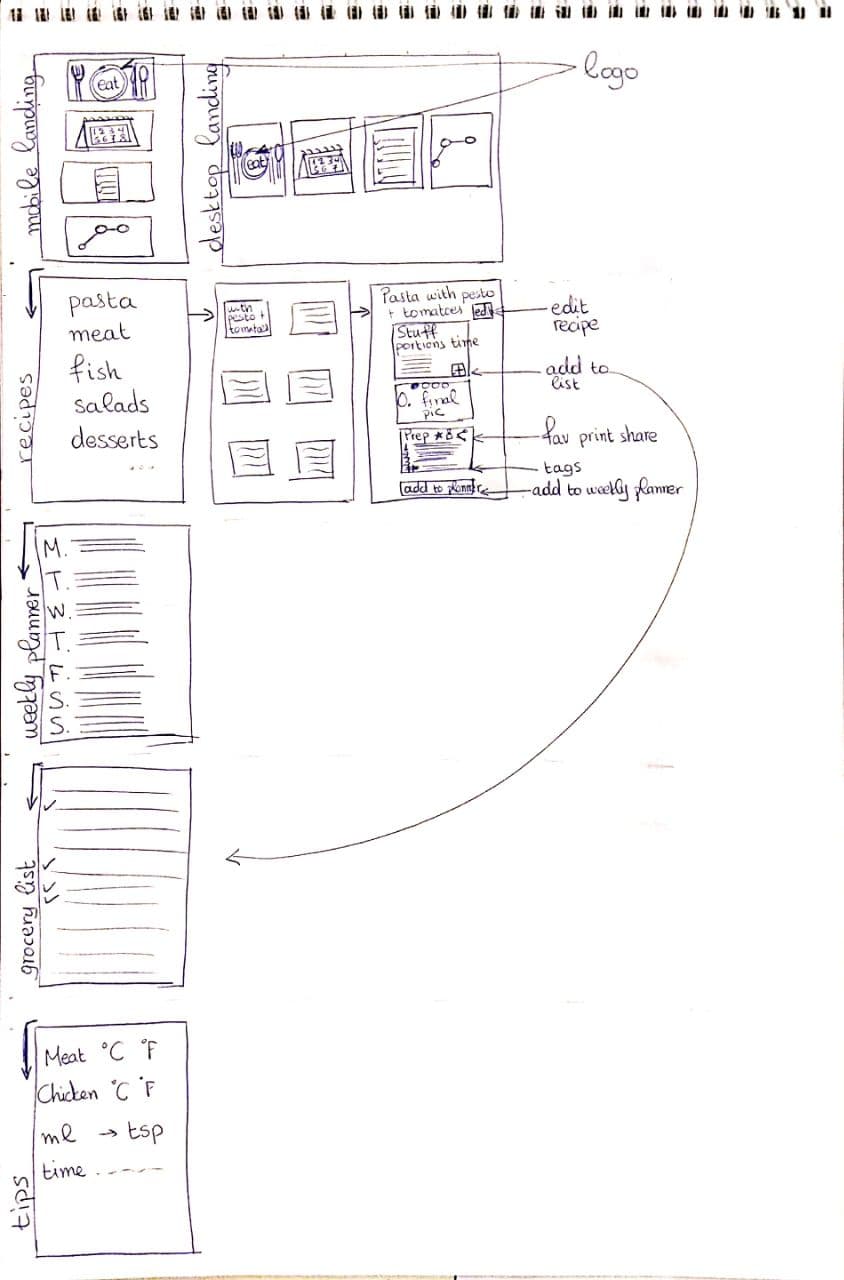 mobile landing
eat
1 2 3 4
5 6 7 8
desktop landing
eat
1 2 3 4
5 6 7
logo
recipes
pasta
meat
fish
salads
desserts
...
with
pesto +
tomatoes
Pasta with pesto
+ tomatoes edit
Stuff
portions time
+
final
pic
Prep
add to planner
edit
recipe
add to
list
fav print share
tags
add to weekly planner
weekly planner
M.
T.
W.
T.
F.
S.
S.
grocery list
tips
Meat °C °F
Chicken °C °F
ml → tsp
time . - - - -